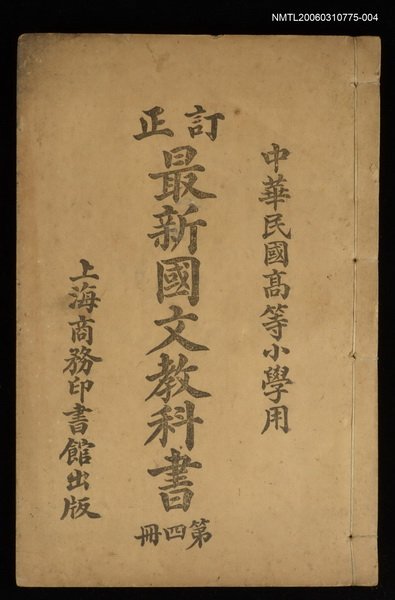 NMTL20060310775-004
中華民國高等小學用
訂正
最新國文教科書
第四冊
上海商務印書館出版